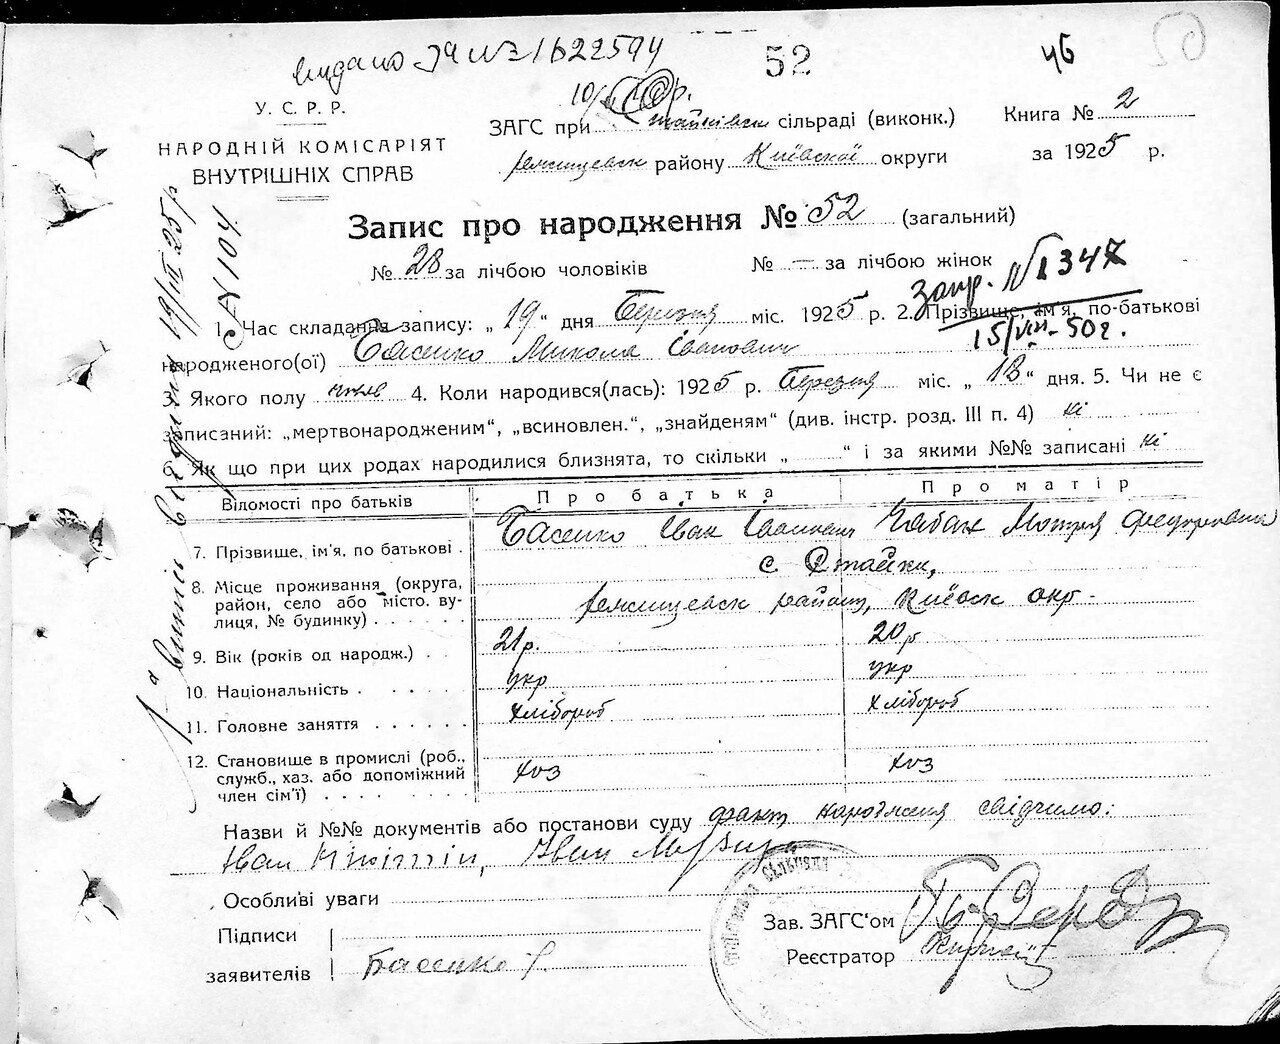 видано ЯЧ № 1622594
52
46
50
У. С. Р. Р.
НАРОДНІЙ КОМІСАРІЯТ
ВНУТРІШНІХ СПРАВ
ЗАГС при Стайківськ сільраді (виконк.)
Ржищевськ району Київської округи
Книга № 2
за 1925 р.
Запис про народження № 52 (загальний)
№ 28 за лічбою чоловіків № — за лічбою жінок
Запр. № 1347
15/VIII-50г.
1. Час складання запису: „ 19 “ дня Березня міс. 1925 р. 2. Прізвище, ім'я, по-батькові
народженого(ої) Басенко Микола Іванович
3. Якого полу чолов 4. Коли народився(лась): 1925 р. Березня міс. „ 18 “ дня. 5. Чи не є
записаний: „мертвонародженим“, „всиновлен.“, „знайденям“ (див. інстр. розд. III п. 4) ні
6. Як що при цих родах народилися близнята, то скільки „ “ і за якими №№ записані ні
Відомості про батьків Про батька Про матір
7. Прізвище, ім'я, по батькові . Басенко Іван Іванович Чабан Мотря
8. Місце проживання (округа, район, село або місто. вулиця, № будинку) с. Стайки,
Ржищевськ району, Київськ окр.
9. Вік (років од народж.) . 21р. 20р
10. Національність . укр укр
11. Головне заняття хлібороб хлібороб
12. Становище в промислі (роб., служб., хаз. або допоміжний член сім'ї) хоз хоз
Назви й №№ документів або постанови суду факт народження свідчимо:
Іван Нікітін, Іван
Особливі уваги
Підписи
заявителів Басенко
Зав. ЗАГС'ом
Реєстратор
№ 104
1а витяг видана 19/III 25р